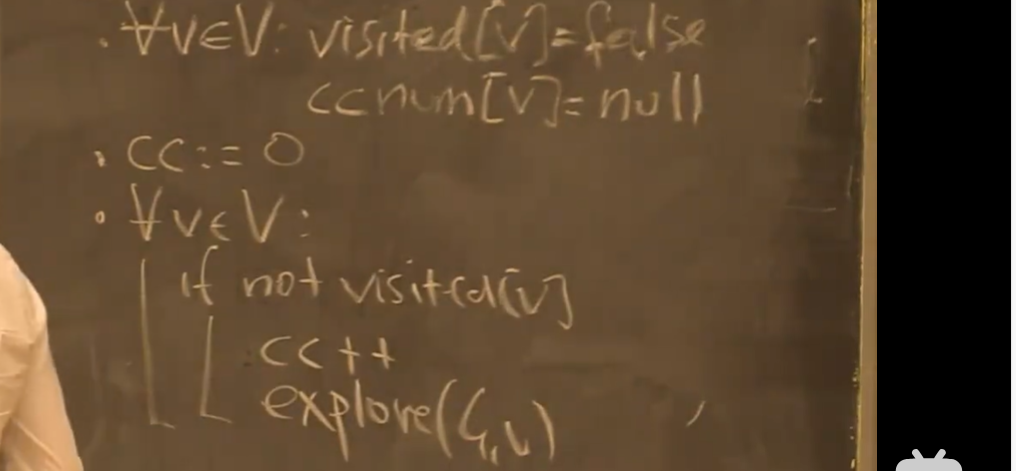 • ∀v∈V: visited[v]=false
ccnum[v]=null
• cc:=0
• ∀v∈V:
if not visited[v]
cc++
explore(G,v)